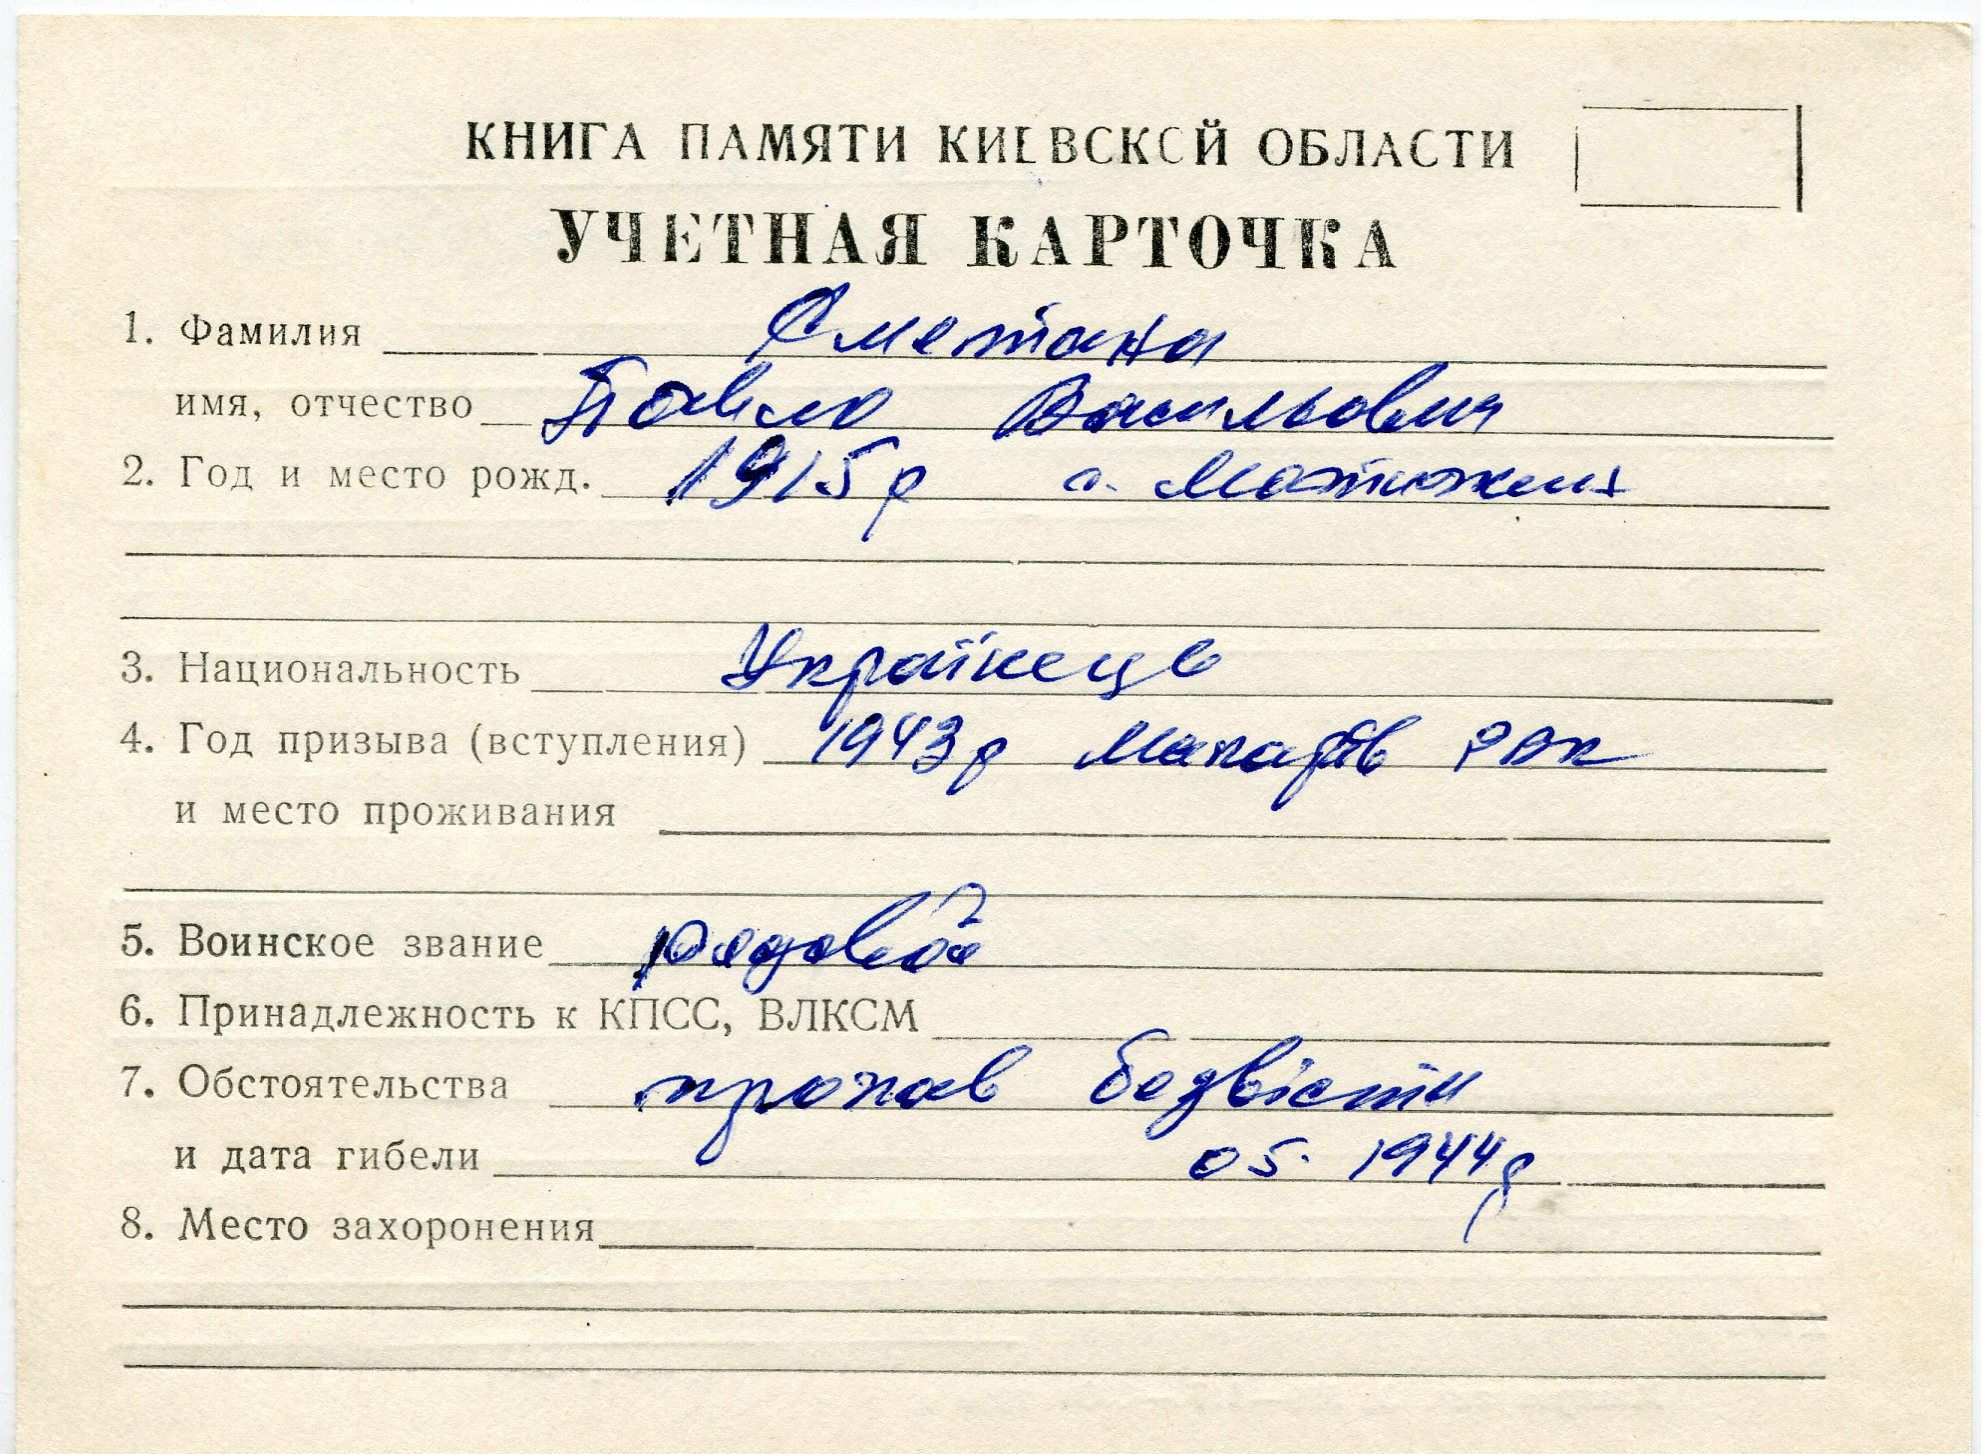 КНИГА ПАМЯТИ КИЕВСКОЙ ОБЛАСТИ
УЧЕТНАЯ КАРТОЧКА
1. Фамилия Сметана
имя, отчество Павло Васильович
2. Год и место рожд. 1915 р с. Мотижин
3. Национальность Українець
4. Год призыва (вступления) 1943 р Макарів РВК
и место проживания
5. Воинское звание рядовой
6. Принадлежность к КПСС, ВЛКСМ
7. Обстоятельства пропав безвісти
и дата гибели 05. 1944 р
8. Место захоронения